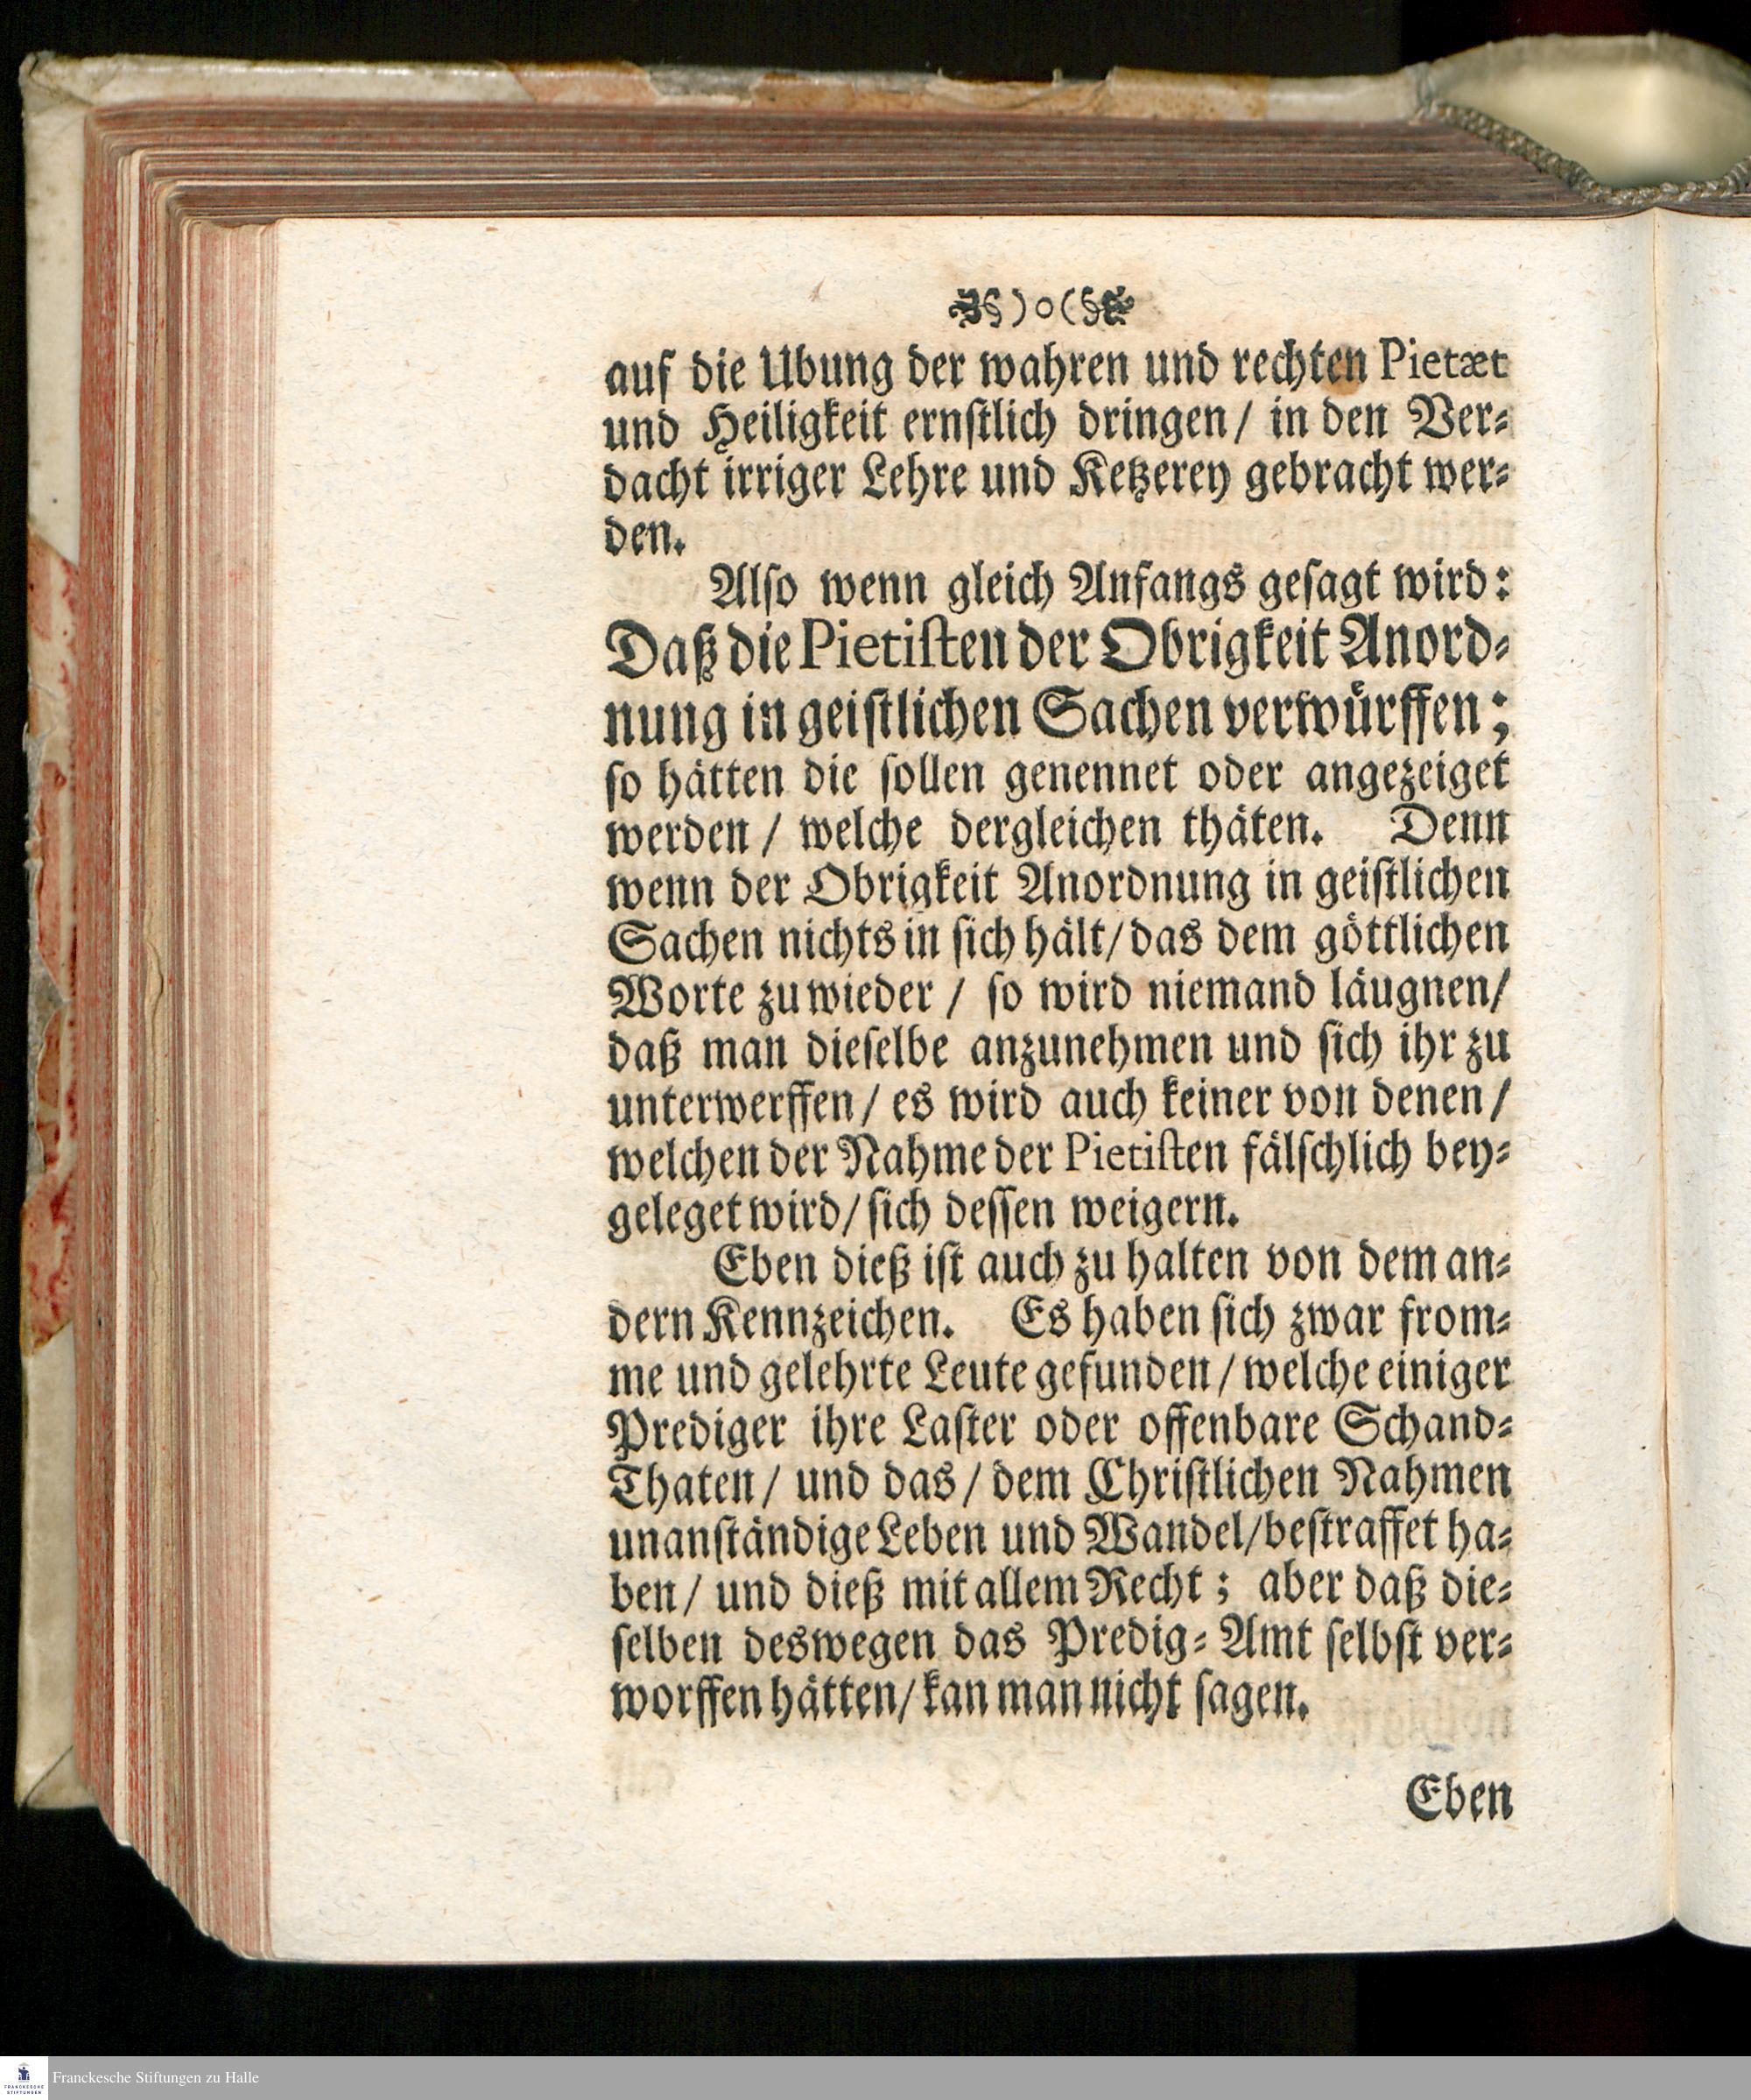 §)o(§
auf die Ubung der wahren und rechten Pietæt
und Heiligkeit ernſtlich dringen/ in den Ver⸗
dacht irriger Lehre und Ketzerey gebracht wer⸗
den.
Alſo wenn gleich Anfangs geſagt wird:
Daß die Pietiſten der Obrigkeit Anord⸗
nung in geiſtlichen Sachen verwuͤrffen;
ſo haͤtten die ſollen genennet oder angezeiget
werden / welche dergleichen thaͤten. Denn
wenn der Obrigkeit Anordnung in geiſtlichen
Sachen nichts in ſich haͤlt/ das dem goͤttlichen
Worte zu wieder / ſo wird niemand laͤugnen/
daß man dieſelbe anzunehmen und ſich ihr zu
unterwerffen / es wird auch keiner von denen /
welchen der Nahme der Pietiſten faͤlſchlich bey⸗
geleget wird/ ſich deſſen weigern.
Eben dieß iſt auch zu halten von dem an⸗
dern Kennzeichen. Es haben ſich zwar from⸗
me und gelehrte Leute gefunden / welche einiger
Prediger ihre Laſter oder offenbare Schand⸗
Thaten / und das / dem Chriſtlichen Nahmen
unanſtaͤndige Leben und Wandel/ beſtraffet ha⸗
ben / und dieß mit allem Recht; aber daß die⸗
ſelben deswegen das Predig⸗Amt ſelbſt ver⸗
worffen haͤtten/ kan man nicht ſagen.
Eben
FRANCKESCHE
STIFTUNGEN
Franckesche Stiftungen zu Halle